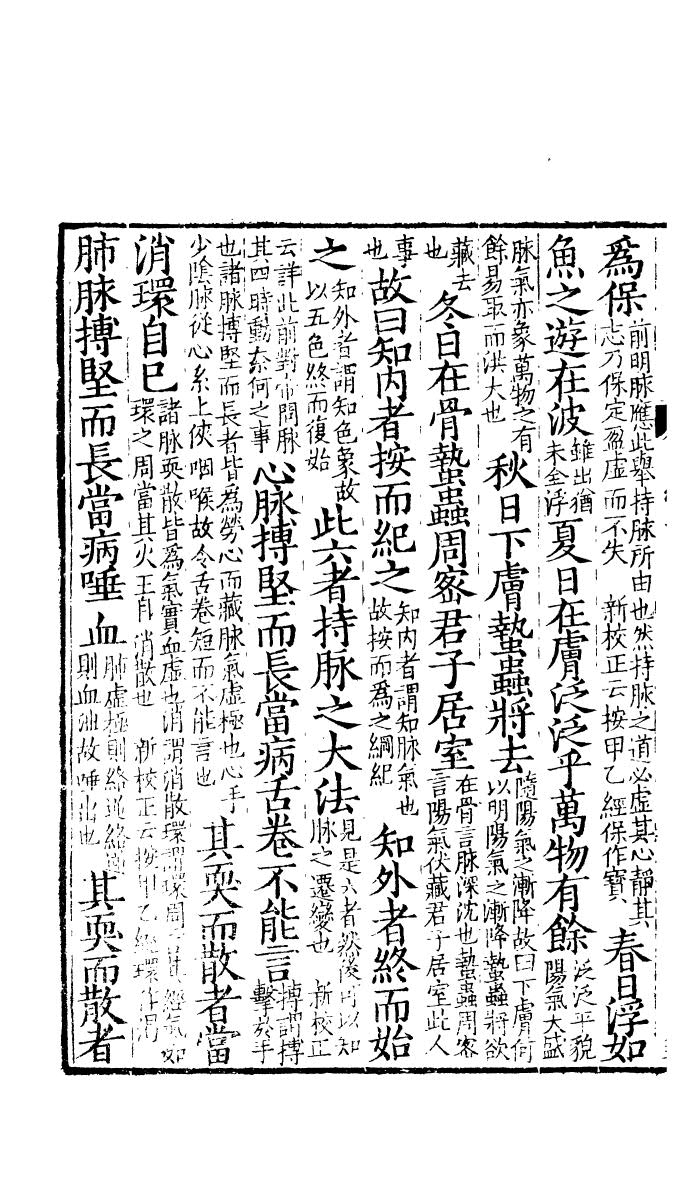 爲保前明脉應此舉持脉所由也然持脉之道必虛其心靜其志乃保定盈虛而不失　新校正云按甲乙經保作寶春日浮如
魚之遊在波雖出猶未全浮夏日在膚泛泛乎萬物有餘泛泛平貌陽氣大盛
脉氣亦象萬物之有餘易取而洪大也秋日下膚蟄蟲將去隨陽氣之漸降故曰下膚何以明陽氣之漸降蟄蟲將欲
藏去也冬日在骨蟄蟲周密君子居室在骨言脉深沈也蟄蟲周密言陽氣伏藏君子居室此人
事也故曰知内者按而紀之知内者謂知脉氣也故按而爲之綱紀知外者終而始
之知外者謂知色象故以五色終而復始此六者持脉之大法見是六者然後可以知脉之遷變也　新校正
云詳此前對帝問脉其四時動奈何之事心脉搏堅而長當病舌卷不能言搏謂搏擊於手
也諸脉搏堅而長者皆爲勞心而藏脉氣虛極也心手少陰脉從心系上俠咽喉故令舌卷短而不能言也其耎而散者當
消環自已諸脉耎散皆爲氣實血虛也消謂消散環謂環周言其經氣如環之周當其火王自消散也　新校正云按甲乙經環作渴
肺脉搏堅而長當病唾血肺虛極則絡逆絡逆則血泄故唾出也其耎而散者